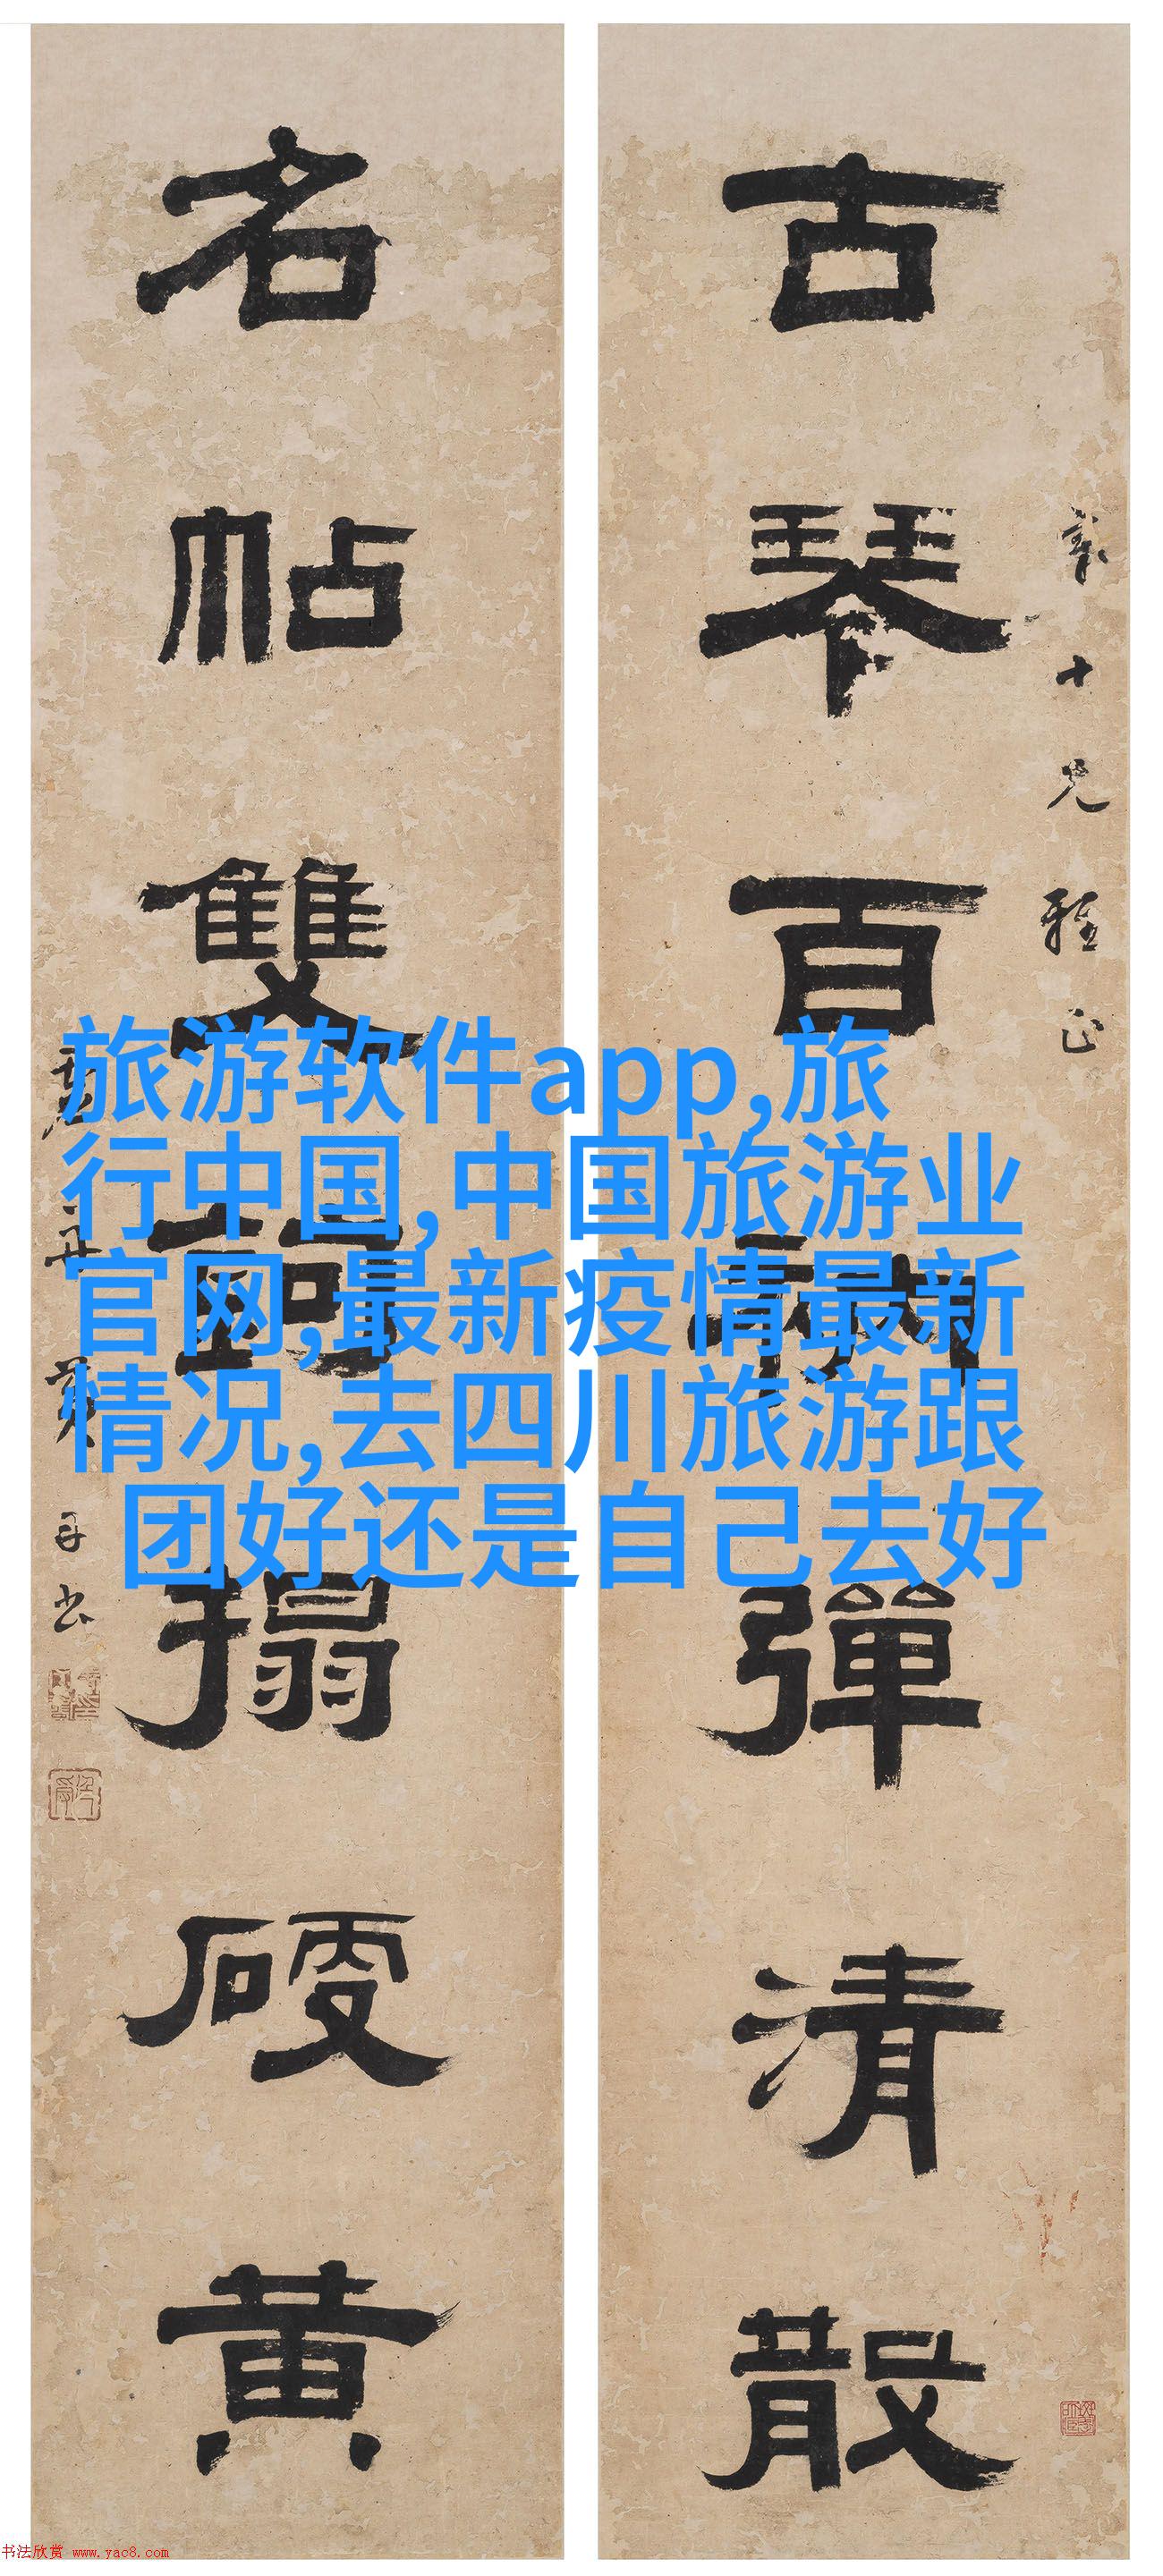 古琴百衲彈清散
戴十兄雅正
名帖雙鉤搨硬黄
旅游软件app,旅
行中国,中国旅游业
官网,最新疫情最新
情况,去四川旅游跟
团好还是自己去好
书法欣赏 www.yac8.com